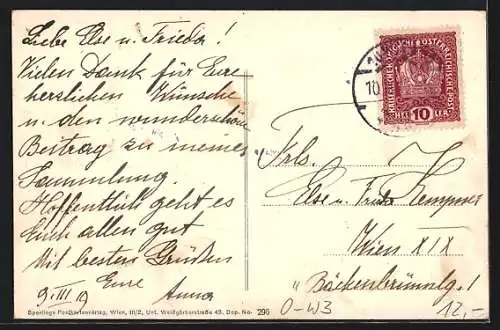 Liebe Else u. Frieda!
Vielen Dank für Eure
herzlichen Wünsche
u. den wunderschönen
Beitrag zu meiner
Sammlung.
Hoffentlich geht es
Euch allen gut
Mit besten Grüßen
Eure
9. III. 19 Anna
Sperlings Postkartenverlag, Wien, III/2, Unt. Weißgärberstraße 43. Dep. No. 296
KAISERLICHE KÖNIGLICHE ÖSTERREICHISCHE POST
HEL 10 LER
10
Frls.
Else u. Frieda
Wien XIX
O-W3
12,-